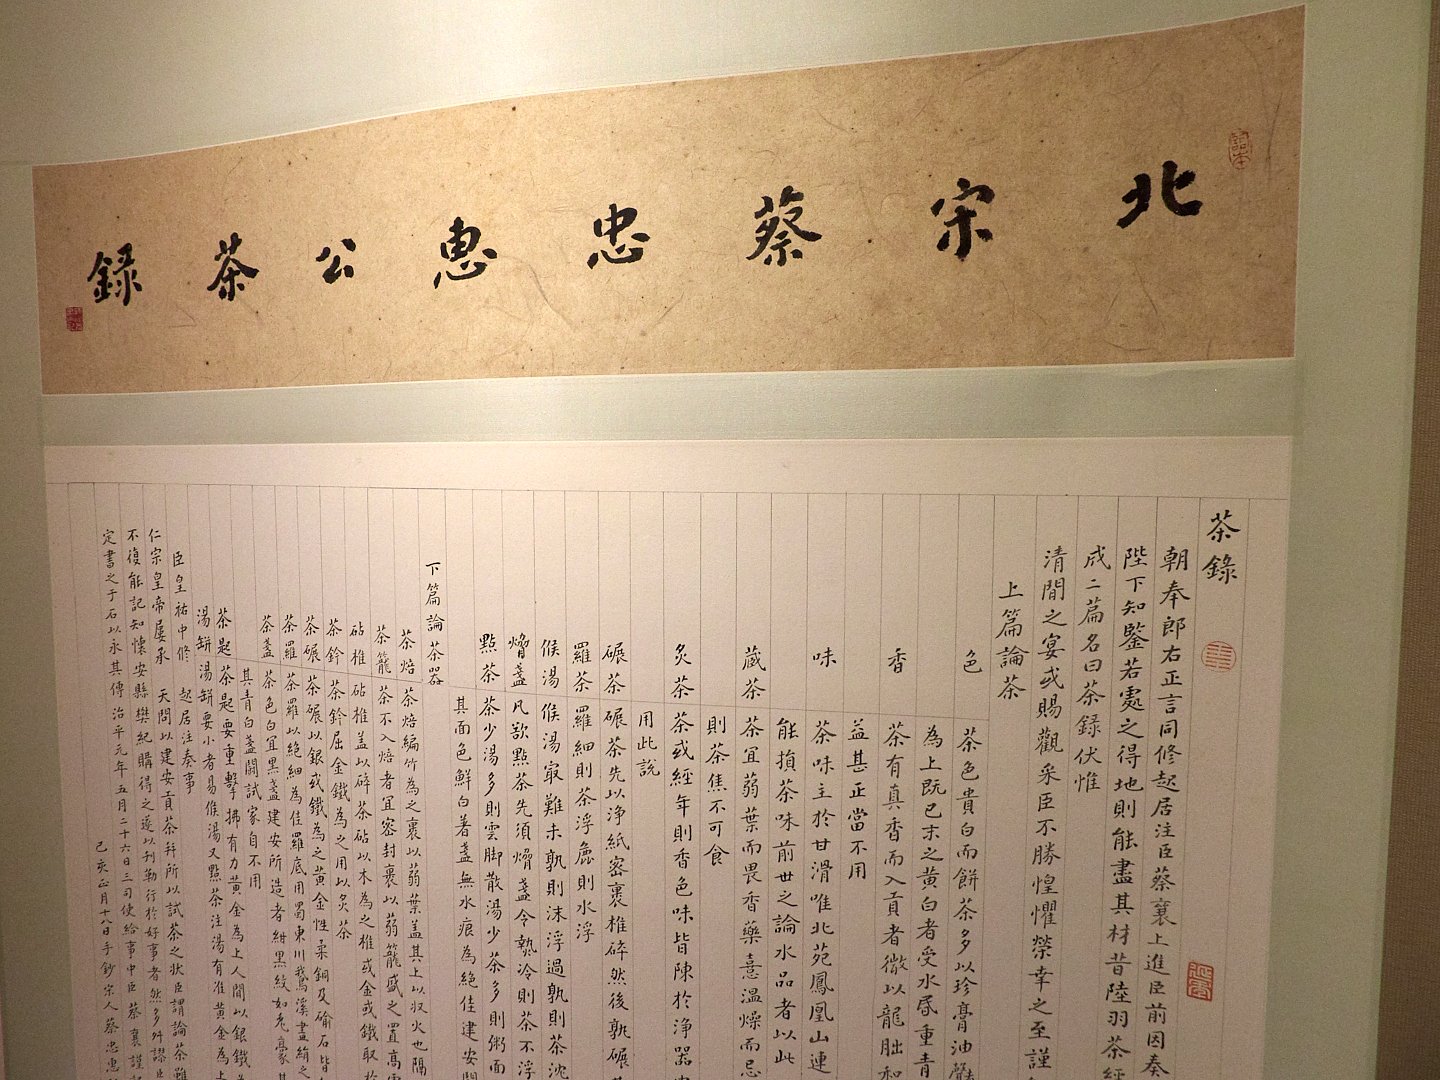 北宋蔡忠惠公茶錄
茶錄
朝奉郎右正言同修起居注臣蔡襄上進臣前因奏
陛下知鑒若處之得地則能盡其材昔陸羽茶經
成二篇名曰茶錄伏惟
清閒之宴或賜觀采臣不勝惶懼榮幸之至謹
上篇論茶
色
茶色貴白而餅茶多以珍膏油
為上既已末之黃白者受水昏重青
香
茶有真香而入貢者微以龍腦和
益甚正當不用
味
茶味主於甘滑唯北苑鳳凰山連
能損茶味前世之論水品者以此
藏茶
茶宜蒻葉而畏香藥喜溫燥而忌
則茶焦不可食
炙茶
茶或經年則香色味皆陳於淨器
用此說
碾茶
碾茶先以淨紙密裹椎碎然後孰碾
羅茶
羅細則茶浮麁則水浮
候湯
候湯寂難未孰則沫浮過孰則茶沈
熁盞
凡欲點茶先須熁盞令熱冷則茶不浮
點茶
茶少湯多則雲脚散湯少茶多則粥面
其面色鮮白著盞無水痕為絕佳建安
下篇論茶器
茶焙
茶焙編竹為之裹以蒻葉蓋其上以收火也隔
茶籠
茶不入焙者宜密封裹以蒻籠盛之置高
砧椎
砧椎蓋以碎茶砧以木為之椎或金或鐵取於
茶鈐
茶鈐屈金鐵為之用以炙茶
茶碾
茶碾以銀或鐵為之黃金性柔銅及鍮石皆
茶羅
茶羅以絕細為佳羅底用蜀東川鵝溪畫絹之
茶盞
茶色白宜黑盞建安所造者紺黑紋如兔毫其
其青白盞鬬試家自不用
茶匙
茶匙要重擊拂有力黃金為上人間以銀鐵
湯缾
湯缾要小者易候湯又點茶注湯有准黃金為上
臣皇祐中修起居注奏事
仁宗皇帝屢承天問以建安貢茶并所以試茶之狀臣謂論茶雖
不復能記知懷安縣樊紀購得之遂以刊勒行於好事者然多舛謬
定書之于石以永其傳治平元年五月二十六日三司使給事中臣蔡襄謹記
己亥正月十八日手鈔宋人蔡忠惠